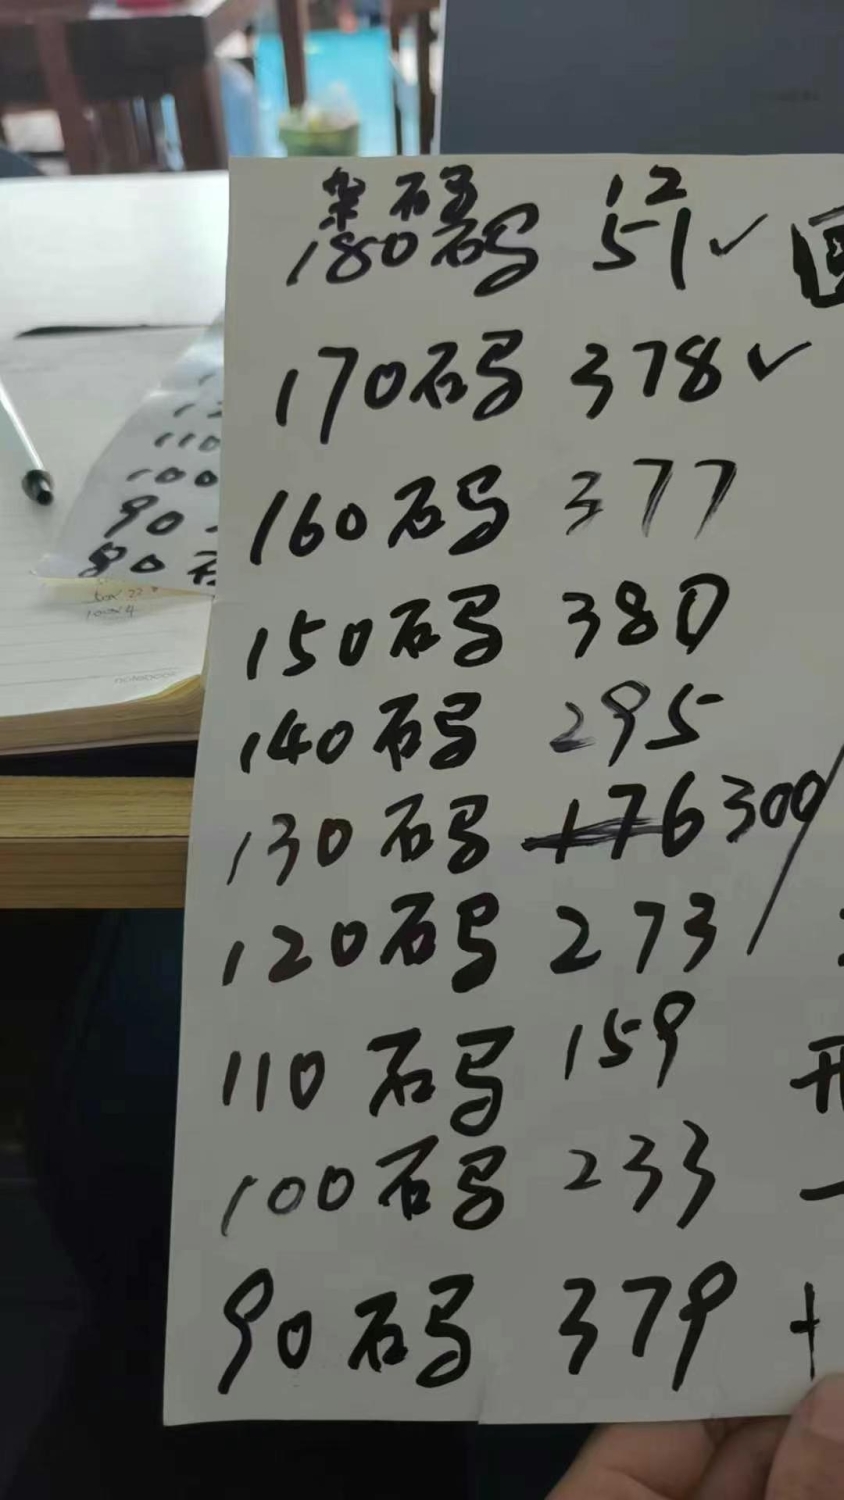 杂码 12
180码 51 ✓
170码 378 ✓
160码 377
150码 380
140码 295
130码 176 300
120码 273
110码 159
100码 233
90码 379 +
110
100
90
80
notebook